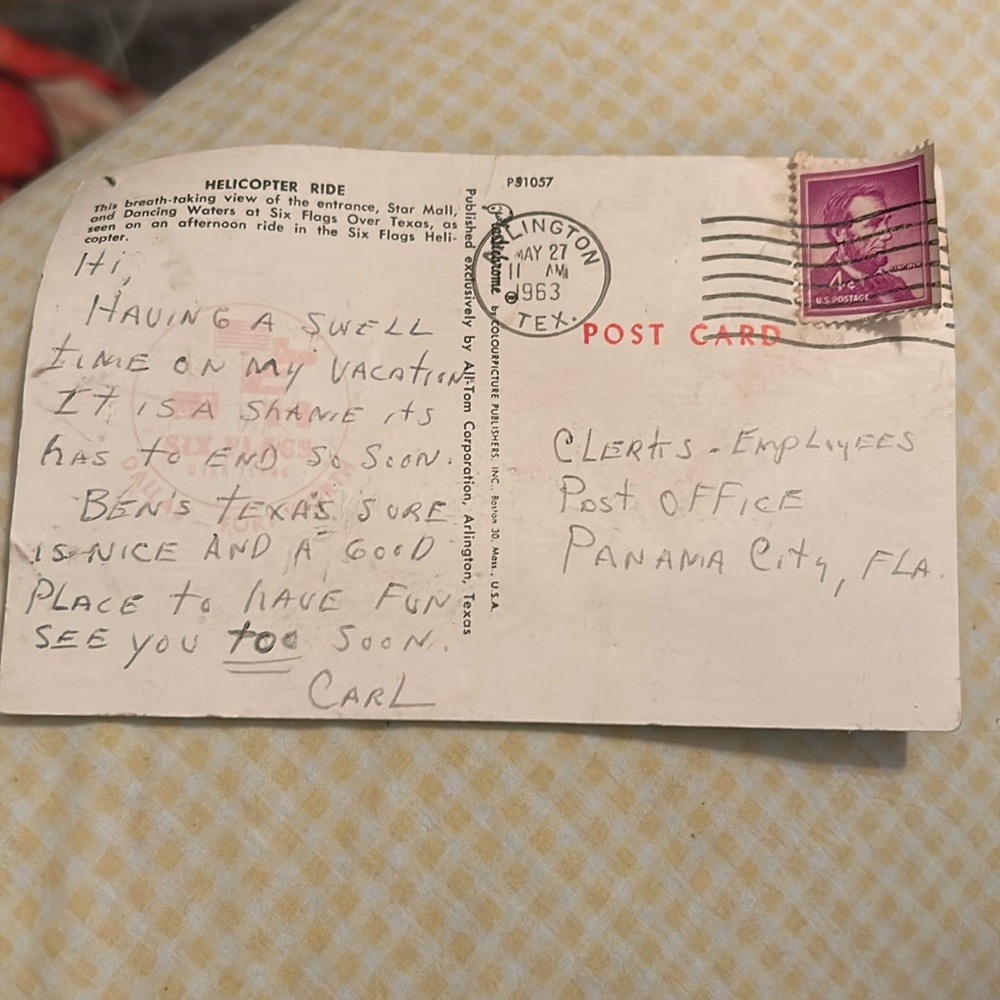 HELICOPTER RIDE
This breath-taking view of the entrance, Star Mall,
and Dancing Waters at Six Flags Over Texas, as
seen on an afternoon ride in the Six Flags Heli-
copter.
Hi,
HAVING A SWELL
TIME ON MY VACATION
IT IS A SHAME ITS
HAS TO END SO SOON.
BEN'S TEXAS SURE
IS NICE AND A GOOD
PLACE TO HAVE FUN
SEE YOU TOO SOON.
CARL
SIX FLAGS
Published exclusively by All-Tom Corporation, Arlington, Texas
Plastichrome ® by COLOURPICTURE PUBLISHERS, INC., Boston 30, Mass., U.S.A.
P51057
LINGTON
MAY 27
11 AM
1963
TEX.
4¢
U.S. POSTAGE
POST CARD
CLERKS - EMPLOYEES
POST OFFICE
PANAMA CITY, FLA.